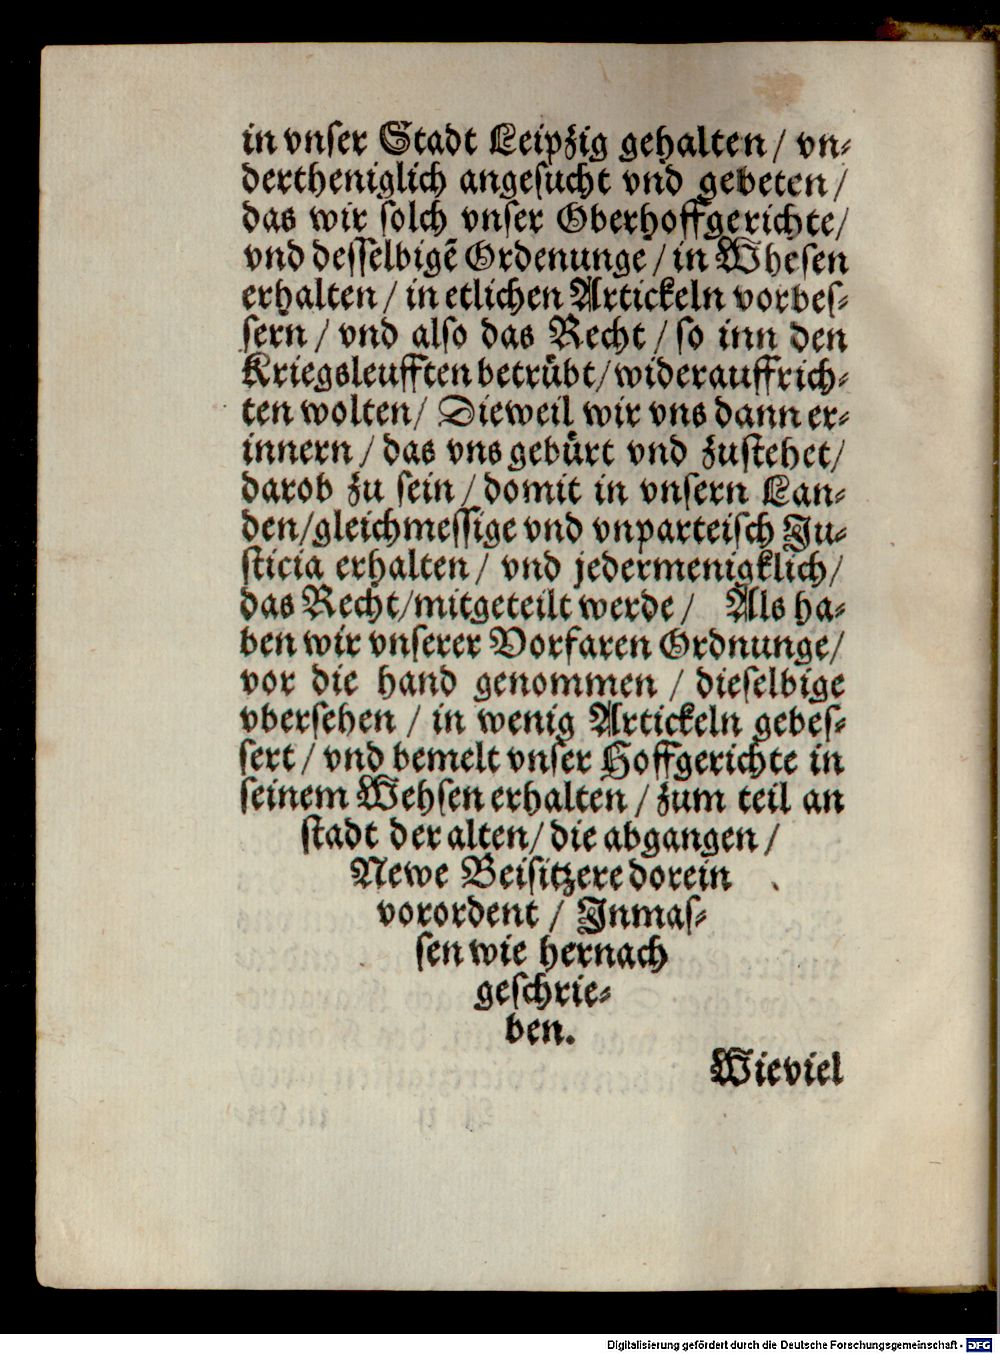 in vnser Stadt Leipzig gehalten / vn⸗
dertheniglich angesucht vnd gebeten /
das wir solch vnser Oberhoffgerichte/
vnd desselbigẽ Ordenunge / in Whesen
erhalten / in etlichen Artickeln vorbes⸗
sern / vnd also das Recht / so inn den
Kriegsleufften betrübt/ widerauffrich⸗
ten wolten/ Dieweil wir vns dann er⸗
innern / das vns gebürt vnd zustehet/
darob zu sein / domit in vnsern Lan⸗
den/gleichmessige vnd vnparteisch Ju⸗
sticia erhalten / vnd jedermenigklich/
das Recht/mitgeteilt werde / Als ha⸗
ben wir vnserer Vorfaren Ordnunge/
vor die hand genommen / dieselbige
vbersehen / in wenig Artickeln gebes⸗
sert / vnd bemelt vnser Hoffgerichte in
seinem Wehsen erhalten / zum teil an
stadt der alten/ die abgangen /
Newe Beisitzere dorein
vorordent / Inmas⸗
sen wie hernach
geschrie⸗
ben.
Wieviel
Digitalisierung gefördert durch die Deutsche Forschungsgemeinschaft - DFG